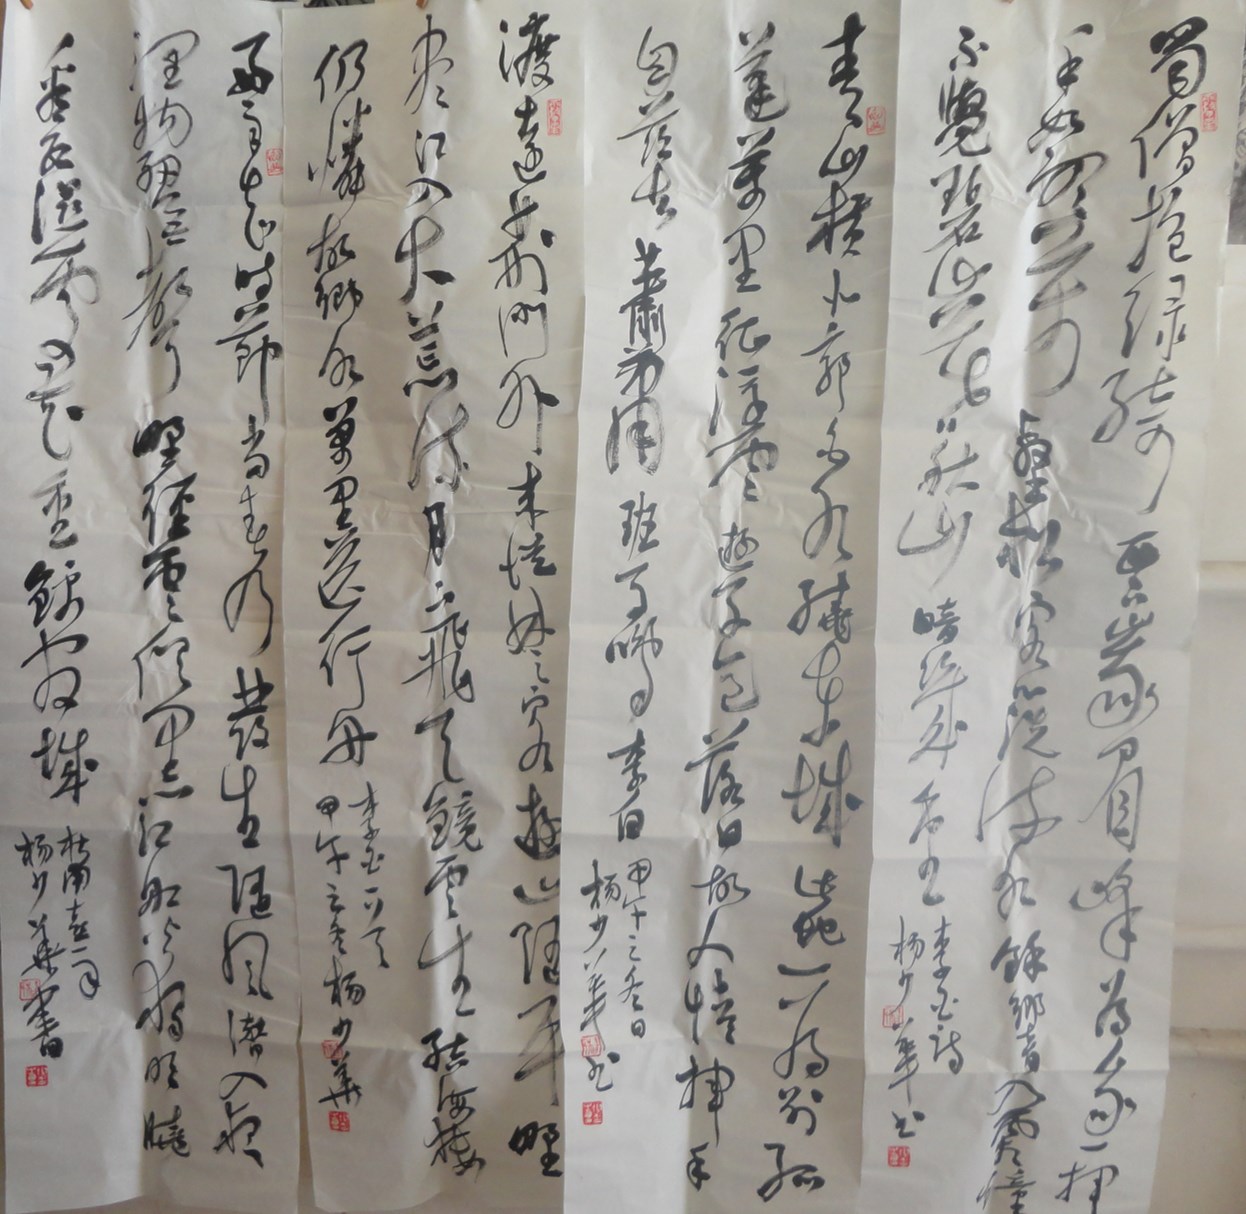 蜀僧抱绿绮西下峨眉峰为我一挥
手如听万壑松客心洗流水餘响入霜钟
不覺碧山暮秋云暗几重
李白诗
杨少华书
青山横北郭白水绕东城此地一为别孤
蓬万里征浮雲游子意落日故人情挥手
自兹去蕭蕭班马鸣 李白
甲午之冬日
杨少华书
渡远荆门外来从楚国游山随平野
尽江入大荒流月下飞天镜雲生结海楼
仍憐故鄉水万里送行舟
李白
甲午之冬杨少华
好雨知时节当春乃發生随风潜入夜
润物细无声野径雲俱黑江船火独明曉
看红湿處花重锦官城
杜甫喜雨
杨少华書